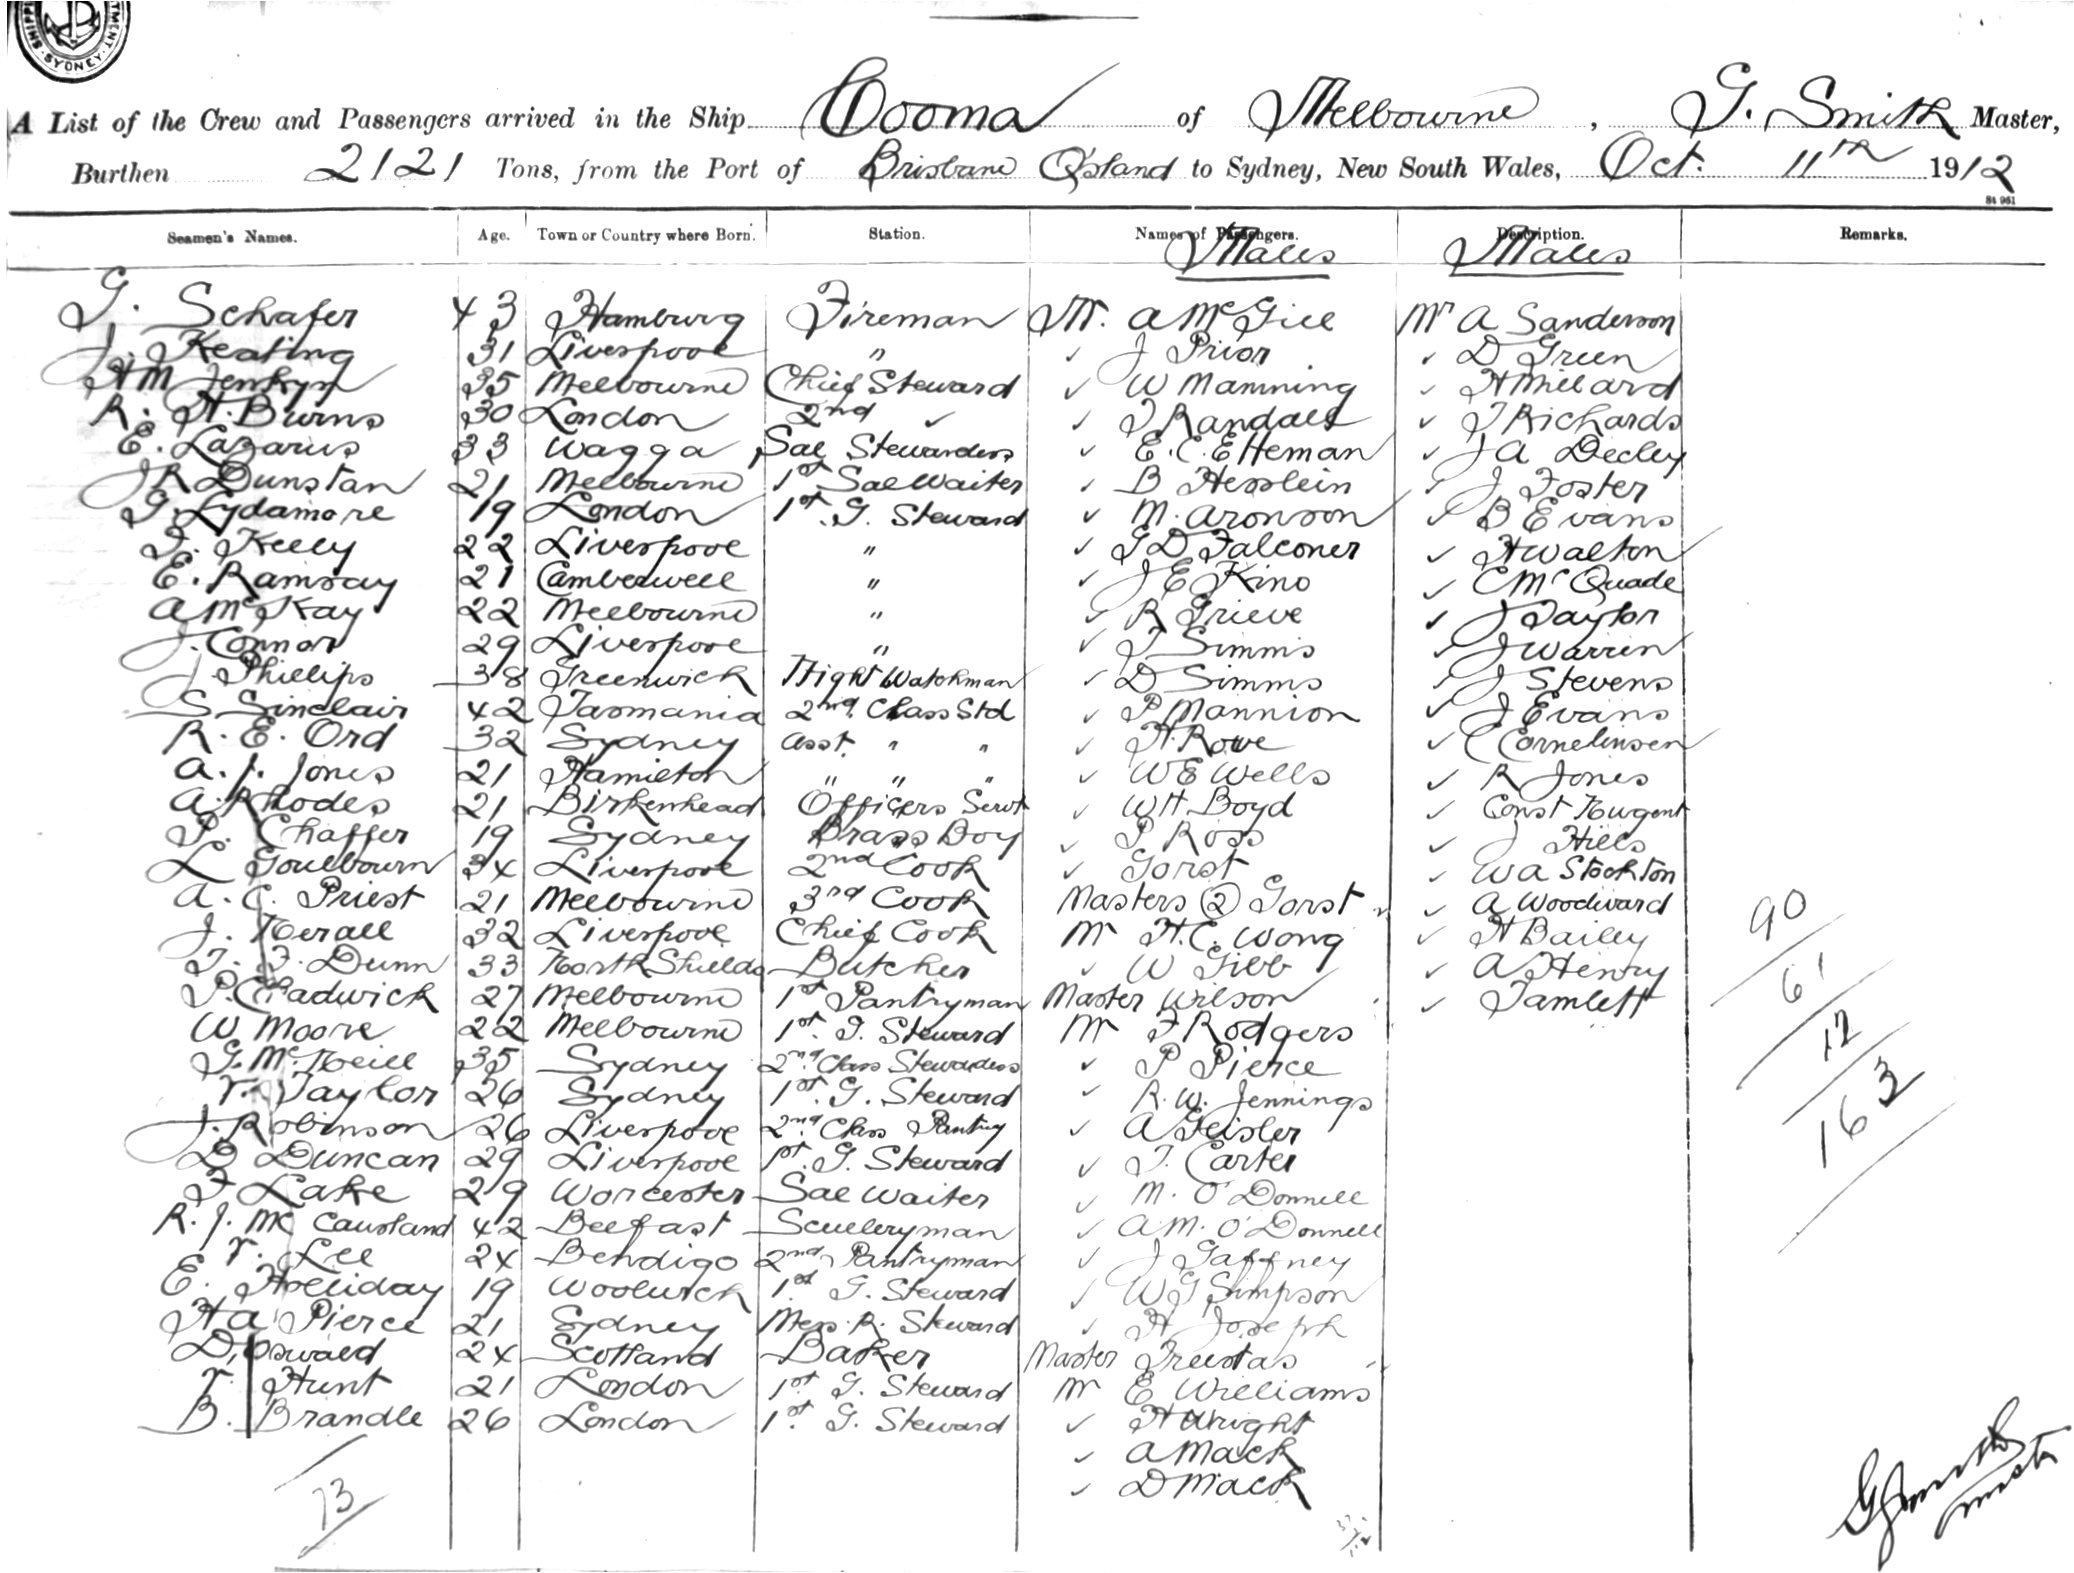 SHIPP MENT. SYDNEY
A List of the Crew and Passengers arrived in the Ship Cooma of Melbourne, G. Smith Master,
Burthen 2121 Tons, from the Port of Brisbane Q'sland to Sydney, New South Wales, Oct. 11th 1912
St 961
Seamen's Names. Age. Town or Country where Born. Station. Names of Passengers. Description. Remarks.
Males Males
G. Schafer 43 Hamburg Fireman Mr. A McGill Mr A Sanderson
J. Keating 31 Liverpool " ✓ J Prior ✓ D Green
H M Jenkyn 35 Melbourne Chief Steward ✓ W Mamning ✓ H Millard
R. H. Burns 30 London 2nd ✓ ✓ J Randall ✓ J Richards
E. Lazarus 33 Wagga Sal Stewardess ✓ E. C. E Heman ✓ J A Decley
J R Dunstan 21 Melbourne 1st Sal Waiter ✓ B Hesslein ✓ J Foster
G. Lydamore 19 London 1st. G. Steward ✓ M. Aronson ✓ B Evans
J. Kelly 22 Liverpool " ✓ G D Falconer ✓ H Walton
E. Ramsay 21 Camberwell " ✓ J E King ✓ C McQuade
A McKay 22 Melbourne " ✓ R Grieve ✓ J Taylor
J. Connor 29 Liverpool " ✓ J Simms ✓ J Warren
J Phillips 38 Greenwich Night Watchman ✓ D Simms ✓ J Stevens
S Sinclair 42 Tasmania 2nd Class Std ✓ P Mannion ✓ J Evans
R. E. Ord 32 Sydney Asst. " " ✓ H. Rowe ✓ C Cornelinsen
A. J. Jones 21 Hamilton " " " ✓ W E Wells ✓ R Jones
A. Rhodes 21 Birkenhead Officers Servt ✓ W H Boyd ✓ Const Nugent
P. Chaffer 19 Sydney Brass Boy ✓ P Ross ✓ J Hills
L Goulbourn 34 Liverpool 2nd Cook ✓ Gorst ✓ W A Stockton
A. C. Priest 21 Melbourne 3rd Cook Masters (2) Gorst ✓ A Woodward
J. Kerall 32 Liverpool Chief Cook Mr H. C. Wong ✓ H Bailey
J. F. Dunn 33 North Shields Butcher ✓ W Gibb ✓ A Henry
P. Chadwick 27 Melbourne 1st Pantryman Master Wilson ✓ Tamlett
W Moore 22 Melbourne 1st. G. Steward Mr F Rodgers
G. McNeill 35 Sydney 2nd Class Stewardess ✓ P Pierce
V. Taylor 26 Sydney 1st. G. Steward ✓ R. W. Jennings
J. Robinson 26 Liverpool 2nd Class Pantry ✓ A Geisler
D Duncan 29 Liverpool 1st. G. Steward ✓ J. Carter
F Lake 29 Worcester Sal Waiter ✓ M. O'Donnell
R. J. Mc Causland 42 Belfast Sculleryman ✓ A M. O'Donnell
V. Lee 24 Bendigo 2nd Pantryman ✓ J Gaffney
E. Holliday 19 Woolwich 1st G. Steward ✓ W G Simpson
H A Pierce 21 Sydney Mess. R. Steward ✓ H Joseph
D. Oswald 24 Scotland Baker Master Freistas
V. Hunt 21 London 1st G. Steward Mr E Williams
B. Brandle 26 London 1st. G. Steward ✓ H Wright
✓ A Mack
✓ D Mack
90
61
12
163
73
G Smith
master